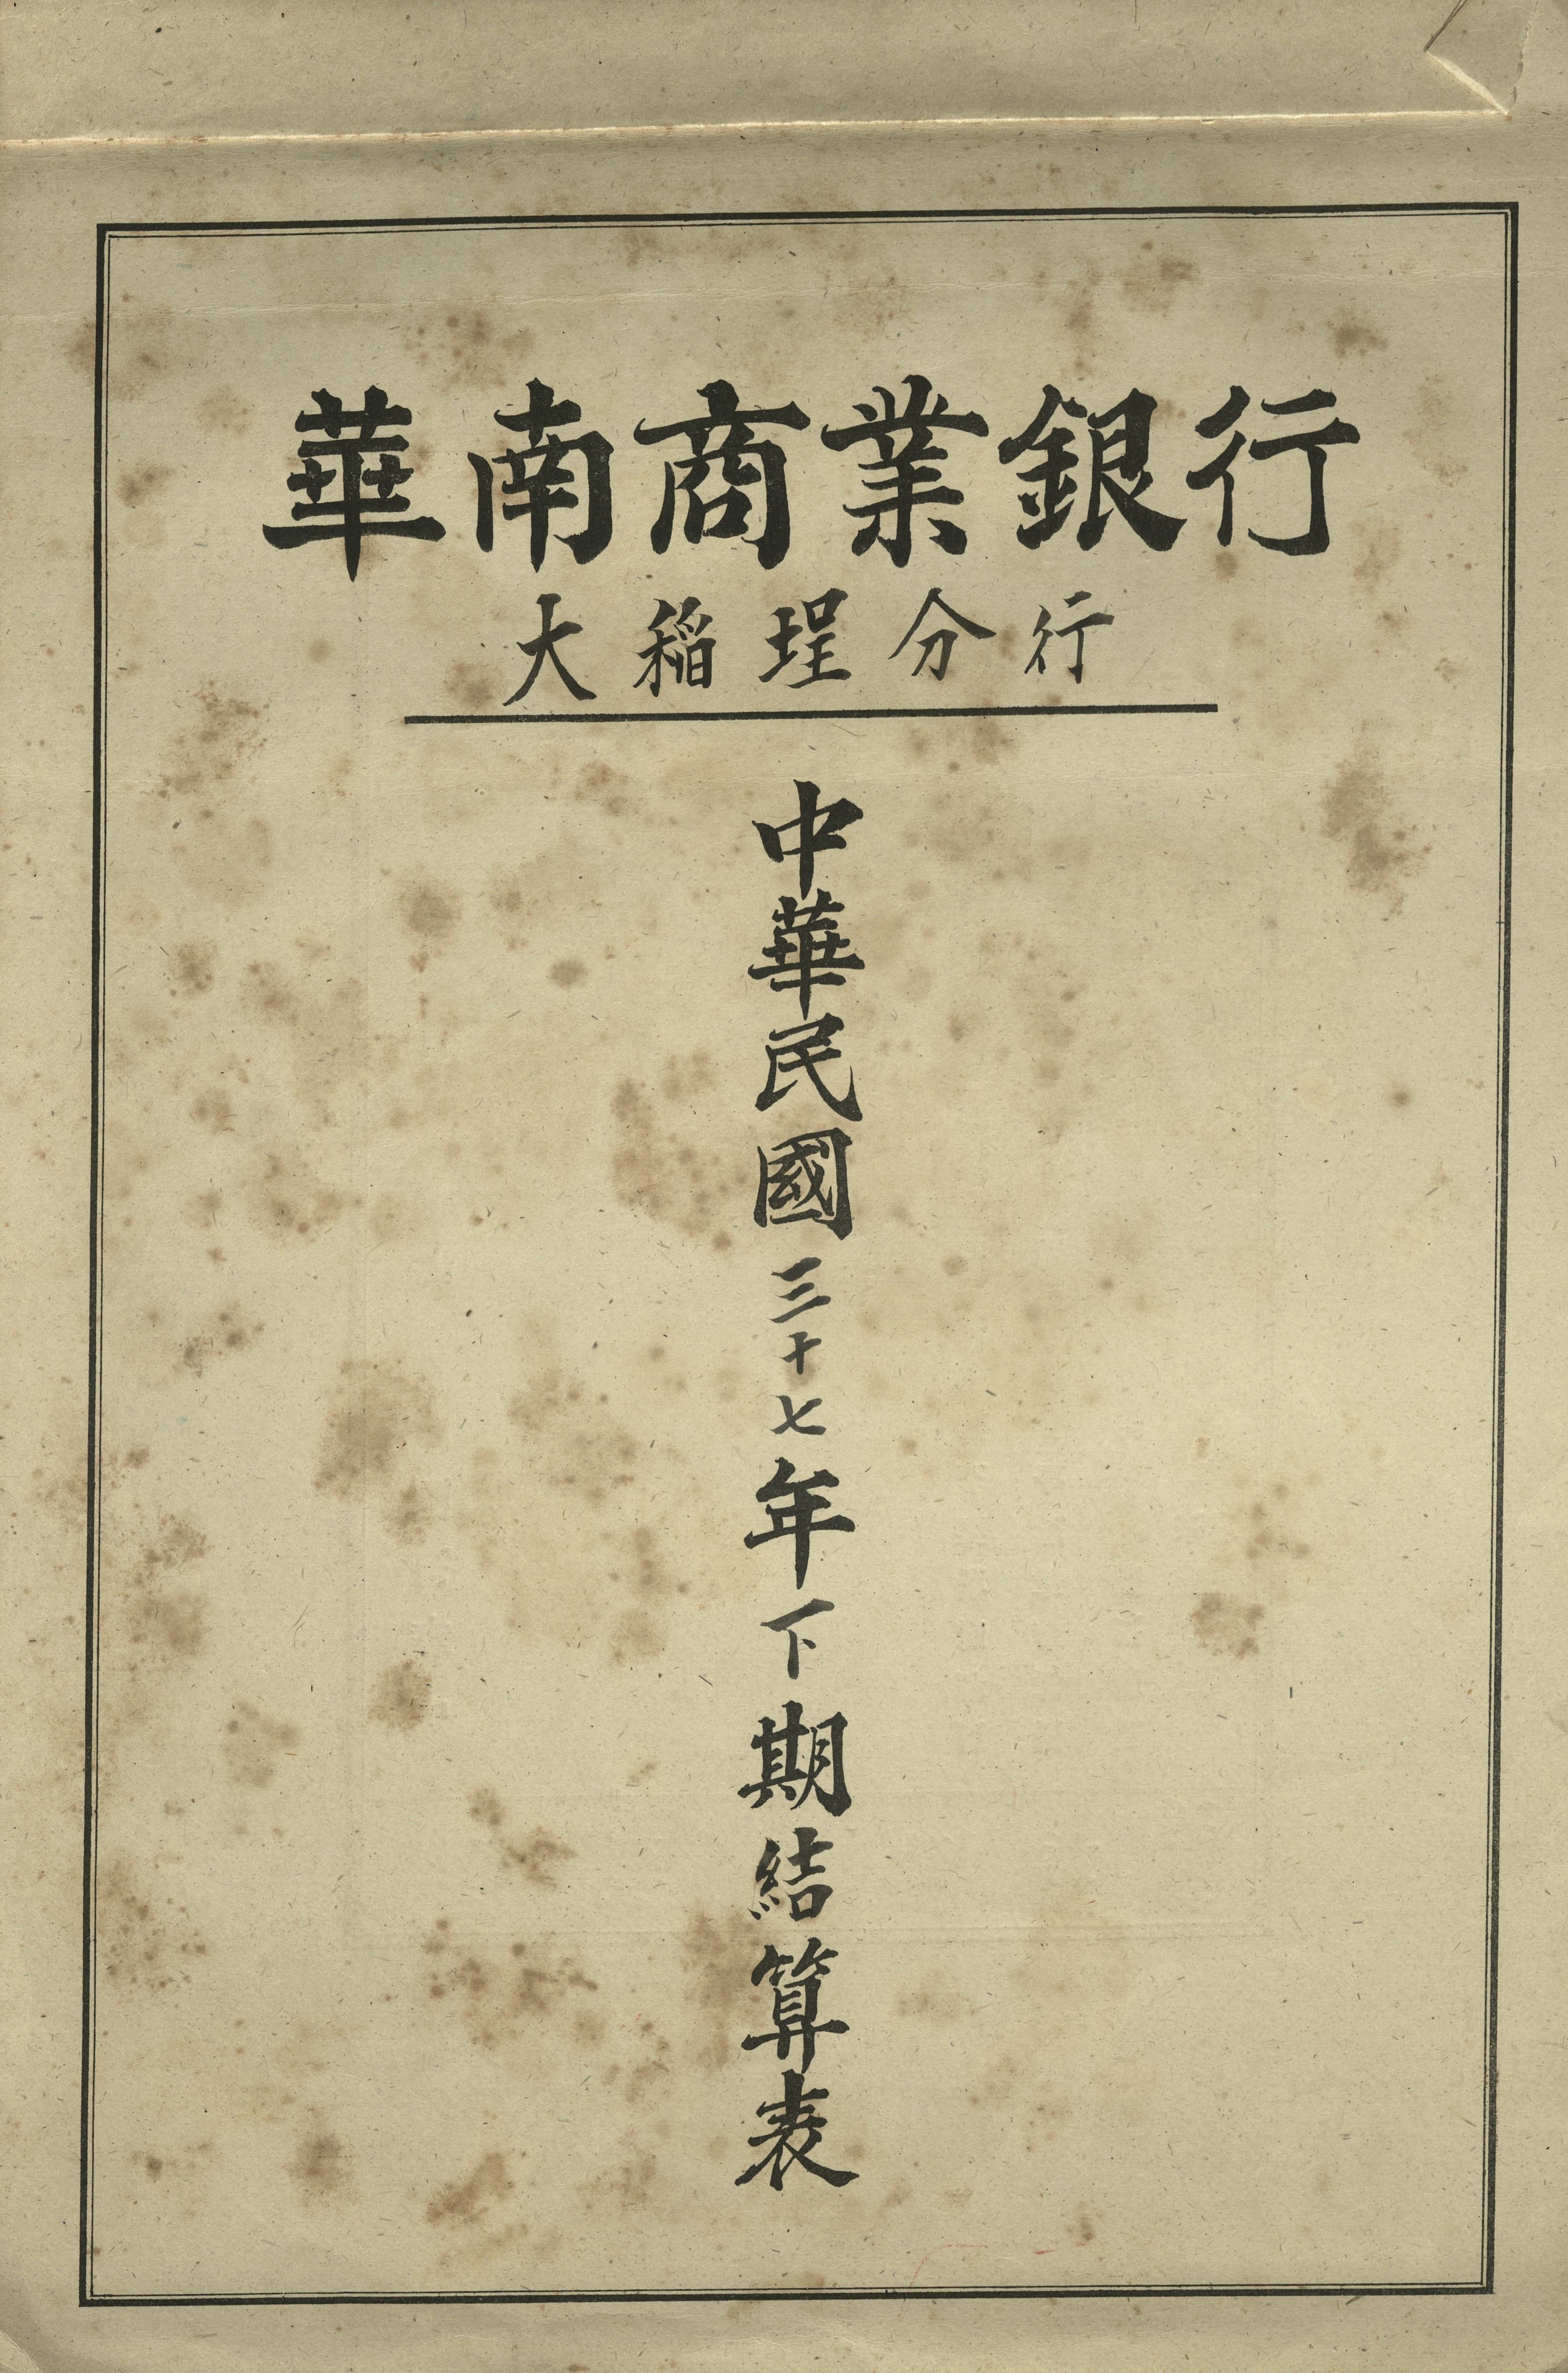 華南商業銀行
大稲埕分行
中華民國三十七年下期結算表